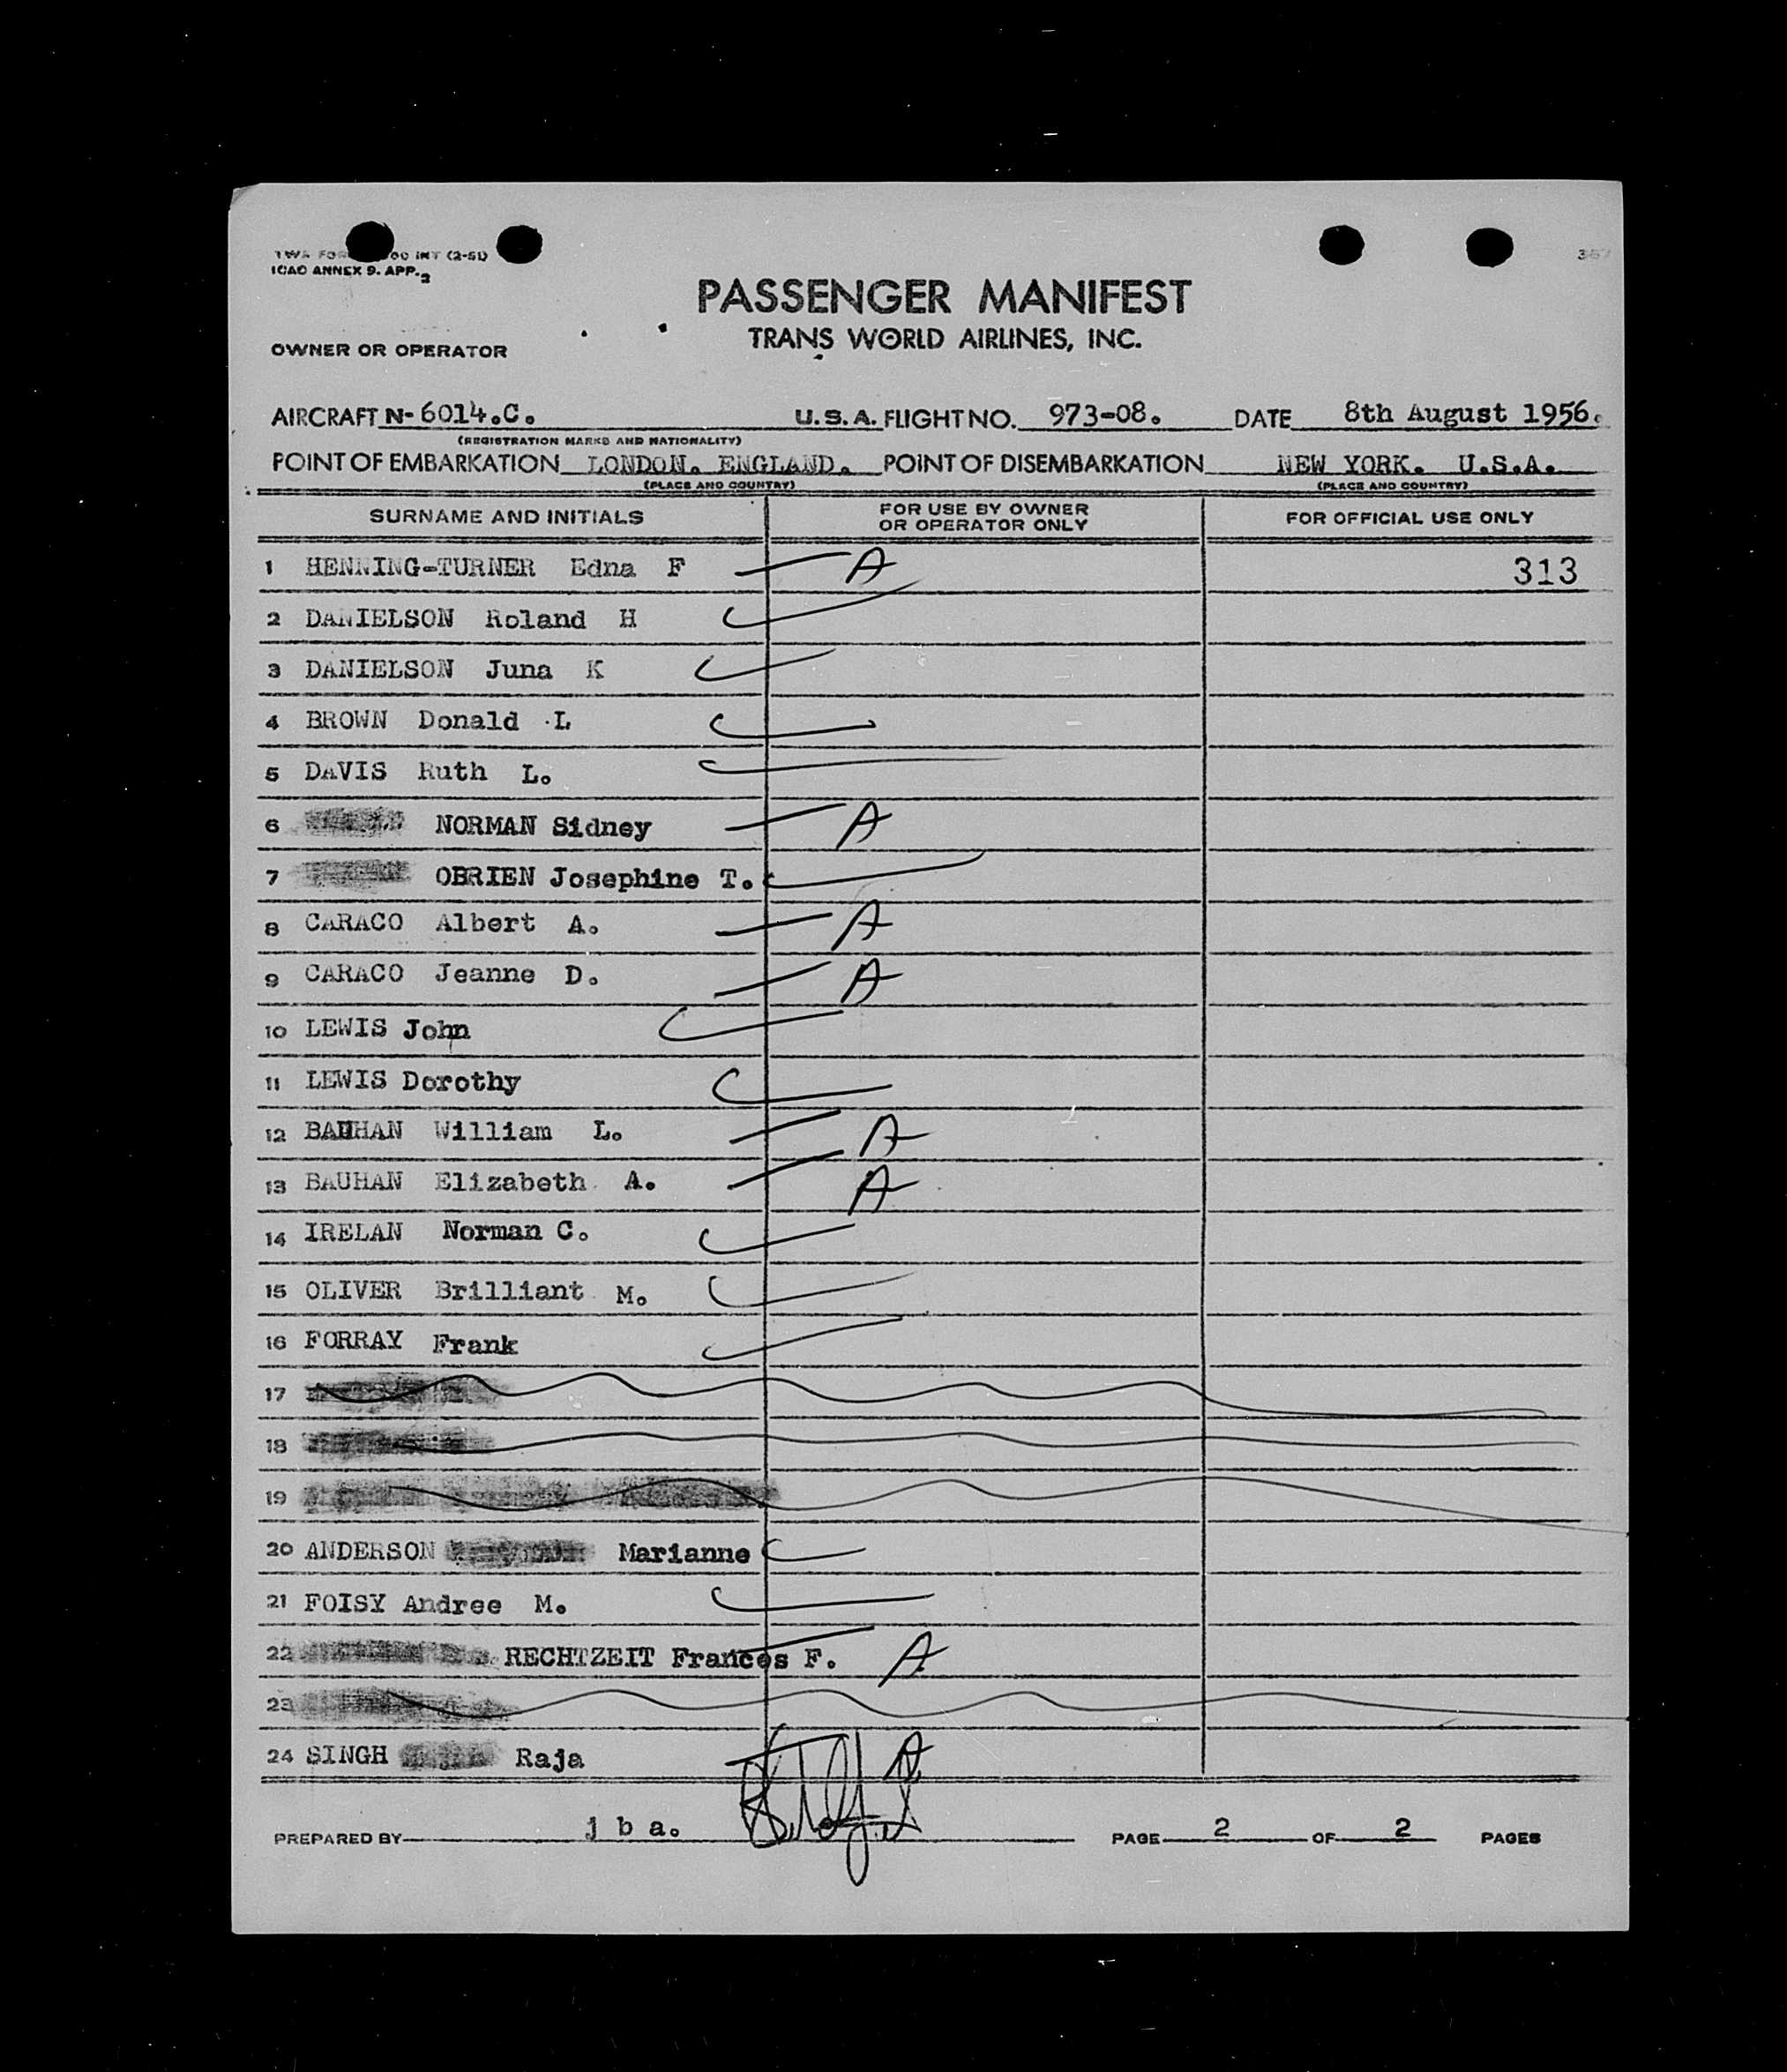 TWA FOR 00 INT (2-51)
ICAO ANNEX 9. APP. 2
PASSENGER MANIFEST
TRANS WORLD AIRLINES, INC.
OWNER OR OPERATOR
AIRCRAFT N-6014.C. U.S.A. FLIGHT NO. 973-08. DATE 8th August 1956.
(REGISTRATION MARKS AND NATIONALITY)
POINT OF EMBARKATION LONDON. ENGLAND. POINT OF DISEMBARKATION NEW YORK. U.S.A.
(PLACE AND COUNTRY) (PLACE AND COUNTRY)
SURNAME AND INITIALS FOR USE BY OWNER OR OPERATOR ONLY FOR OFFICIAL USE ONLY
1 HENNING-TURNER Edna F A 313
2 DANIELSON Roland H
3 DANIELSON Juna K
4 BROWN Donald L
5 DAVIS Ruth L.
6 NORMAN Sidney A
7 OBRIEN Josephine T.
8 CARACO Albert A. A
9 CARACO Jeanne D. A
10 LEWIS John
11 LEWIS Dorothy
12 BAUHAN William L. A
13 BAUHAN Elizabeth A. A
14 IRELAN Norman C.
15 OLIVER Brilliant M.
16 FORRAY Frank
17
18
19
20 ANDERSON Marianne
21 FOISY Andree M.
22 RECHTZEIT Frances F. A
23
24 SINGH Raja A
PREPARED BY j b a. PAGE 2 OF 2 PAGES